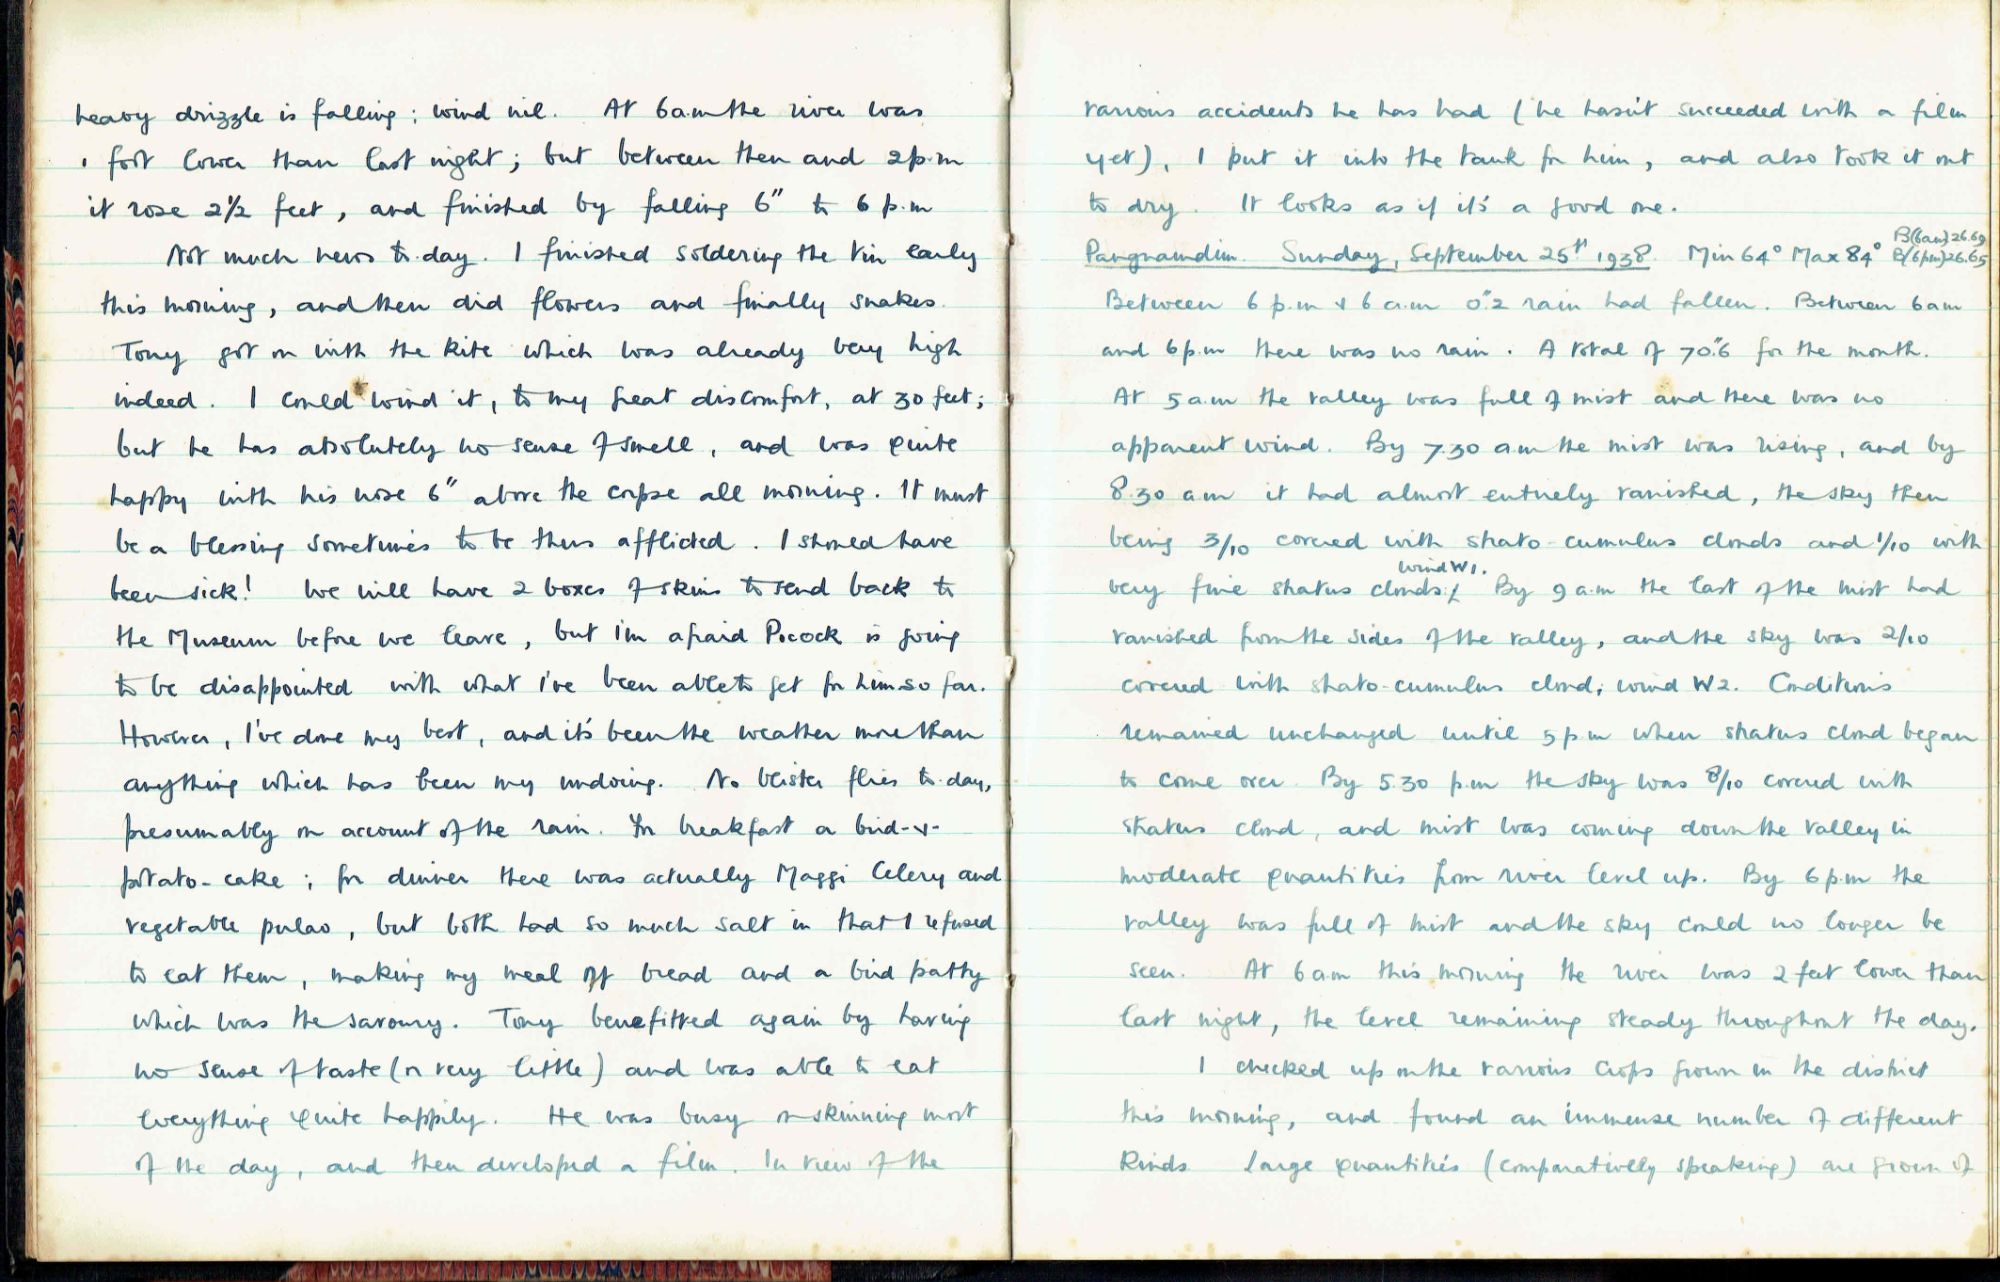 heavy drizzle is falling; wind nil. At 6 a.m the river was
1 foot lower than last night; but between then and 2 p.m
it rose 2 1/2 feet, and finished by falling 6" to 6 p.m
Not much news to-day. I finished soldering the tin early
this morning, and then did flowers and finally snakes.
Tony got on with the kite which was already very high
indeed. I could wind it, to my great discomfort, at 30 feet;
but he has absolutely no sense of smell, and was quite
happy with his nose 6" above the corpse all morning. It must
be a blessing sometimes to be thus afflicted. I should have
been sick! We will have 2 boxes of skins to send back to
the Museum before we leave, but I'm afraid Pocock is going
to be disappointed with what I've been able to get for him so far.
However, I've done my best, and it's been the weather more than
anything which has been my undoing. No blister flies to-day,
presumably on account of the rain. For breakfast a bird-&-
potato-cake; for dinner there was actually Maggi Celery and
vegetable pulao, but both had so much salt in that I refused
to eat them, making my meal off bread and a bird patty
which was the savoury. Tony benefitted again by having
no sense of taste (or very little) and was able to eat
everything quite happily. He was busy on skinning most
of the day, and then developed a film. In view of the
various accidents he has had (he hasn't succeeded with a film
yet), I put it into the tank for him, and also took it out
to dry. It looks as if it's a good one.
Pangnamdim. Sunday, September 25th 1938. Min 64° Max 84° B(6am) 26.69
B(6pm) 26.65
Between 6 p.m & 6 a.m 0".2 rain had fallen. Between 6 am
and 6 p.m there was no rain. A total of 70".6 for the month.
At 5 a.m the valley was full of mist and there was no
apparent wind. By 7.30 a.m the mist was rising, and by
8.30 a.m it had almost entirely vanished, the sky then
being 3/10 covered with strato-cumulus clouds and 1/10 with
wind W1.
very fine stratus clouds; By 9 a.m the last of the mist had
vanished from the sides of the valley, and the sky was 2/10
covered with strato-cumulus cloud; wind W2. Conditions
remained unchanged until 5 p.m when stratus cloud began
to come over. By 5.30 p.m the sky was 8/10 covered with
stratus cloud, and mist was coming down the valley in
moderate quantities from river level up. By 6 p.m the
valley was full of mist and the sky could no longer be
seen. At 6 a.m this morning the river was 2 feet lower than
last night, the level remaining steady throughout the day.
I checked up on the various crops grown in the district
this morning, and found an immense number of different
kinds Large quantities (comparatively speaking) are grown of